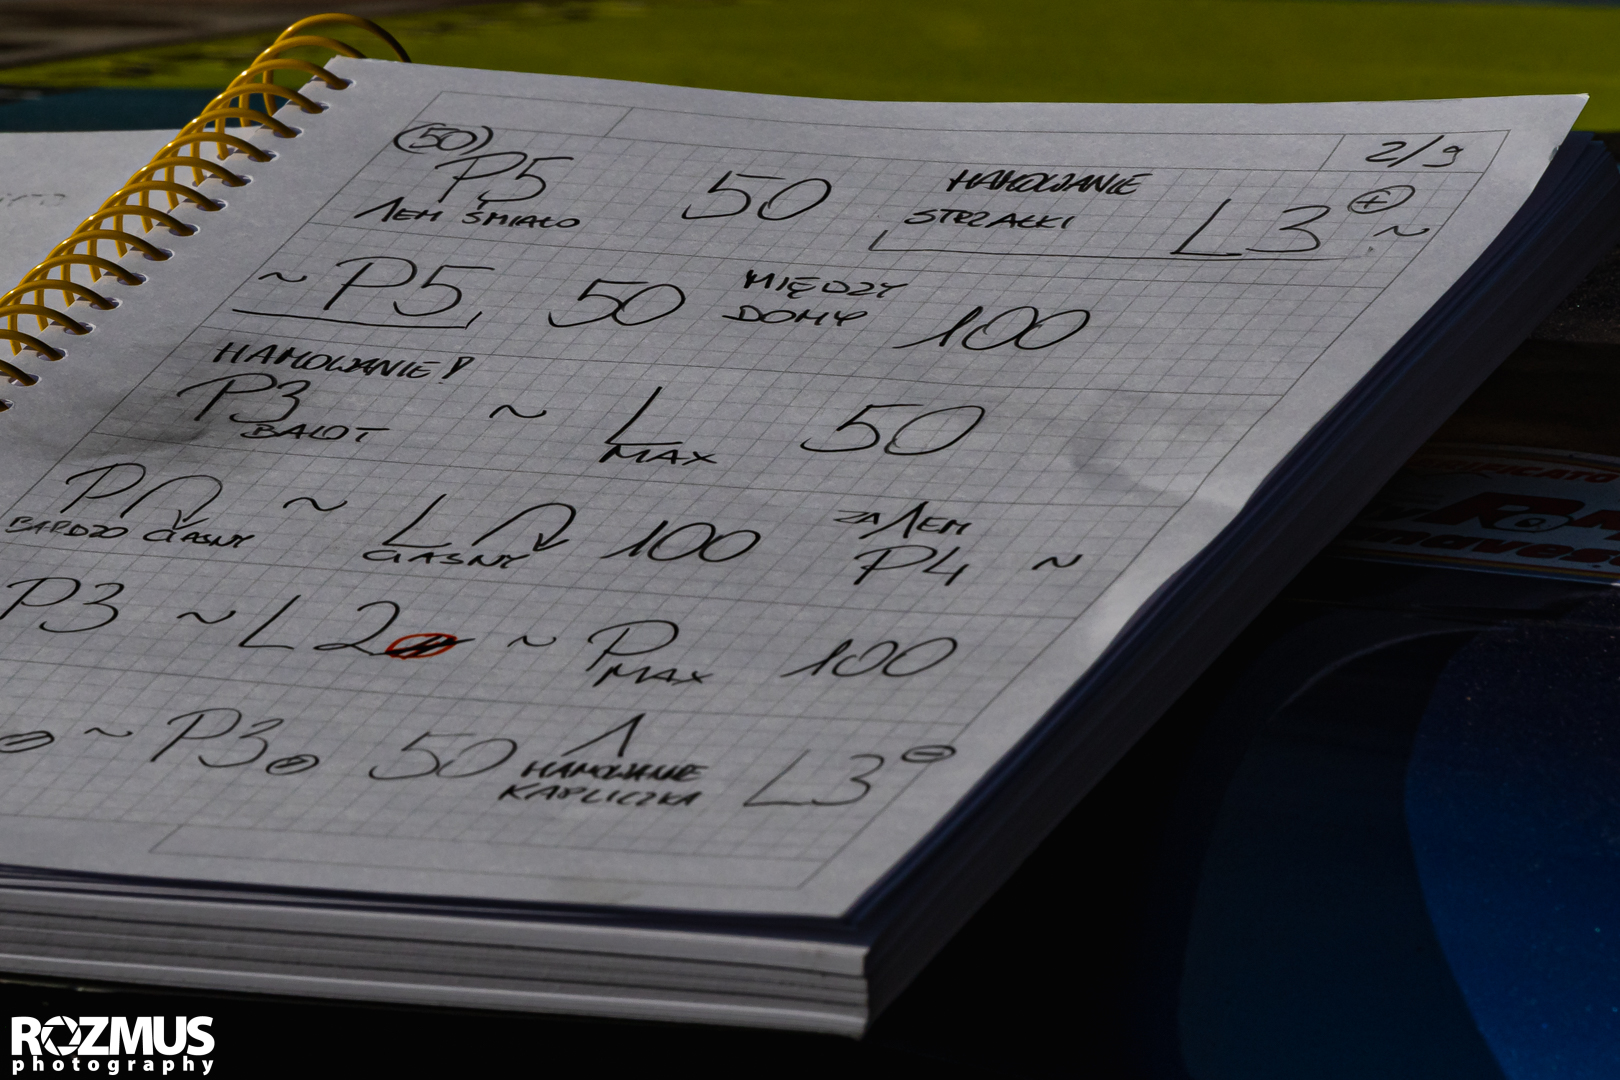 2/9
(50) P5 50 HAMOWANIE L3 (+) ~
1EM ŚMIAŁO STRZAŁKI
~ P5 50 MIĘDZY DOMY 100
HAMOWANIE!
P3 ~ L 50
BALOT MAX
P ~ L 100 ZA 1EM P4 ~
BARDZO CIASNY CIASNY
P3 ~ L2 ~ P 100
MAX
~ P3 50 HAMOWANIE L3 (-)
KAPLICZKA
ROZMUS
photography